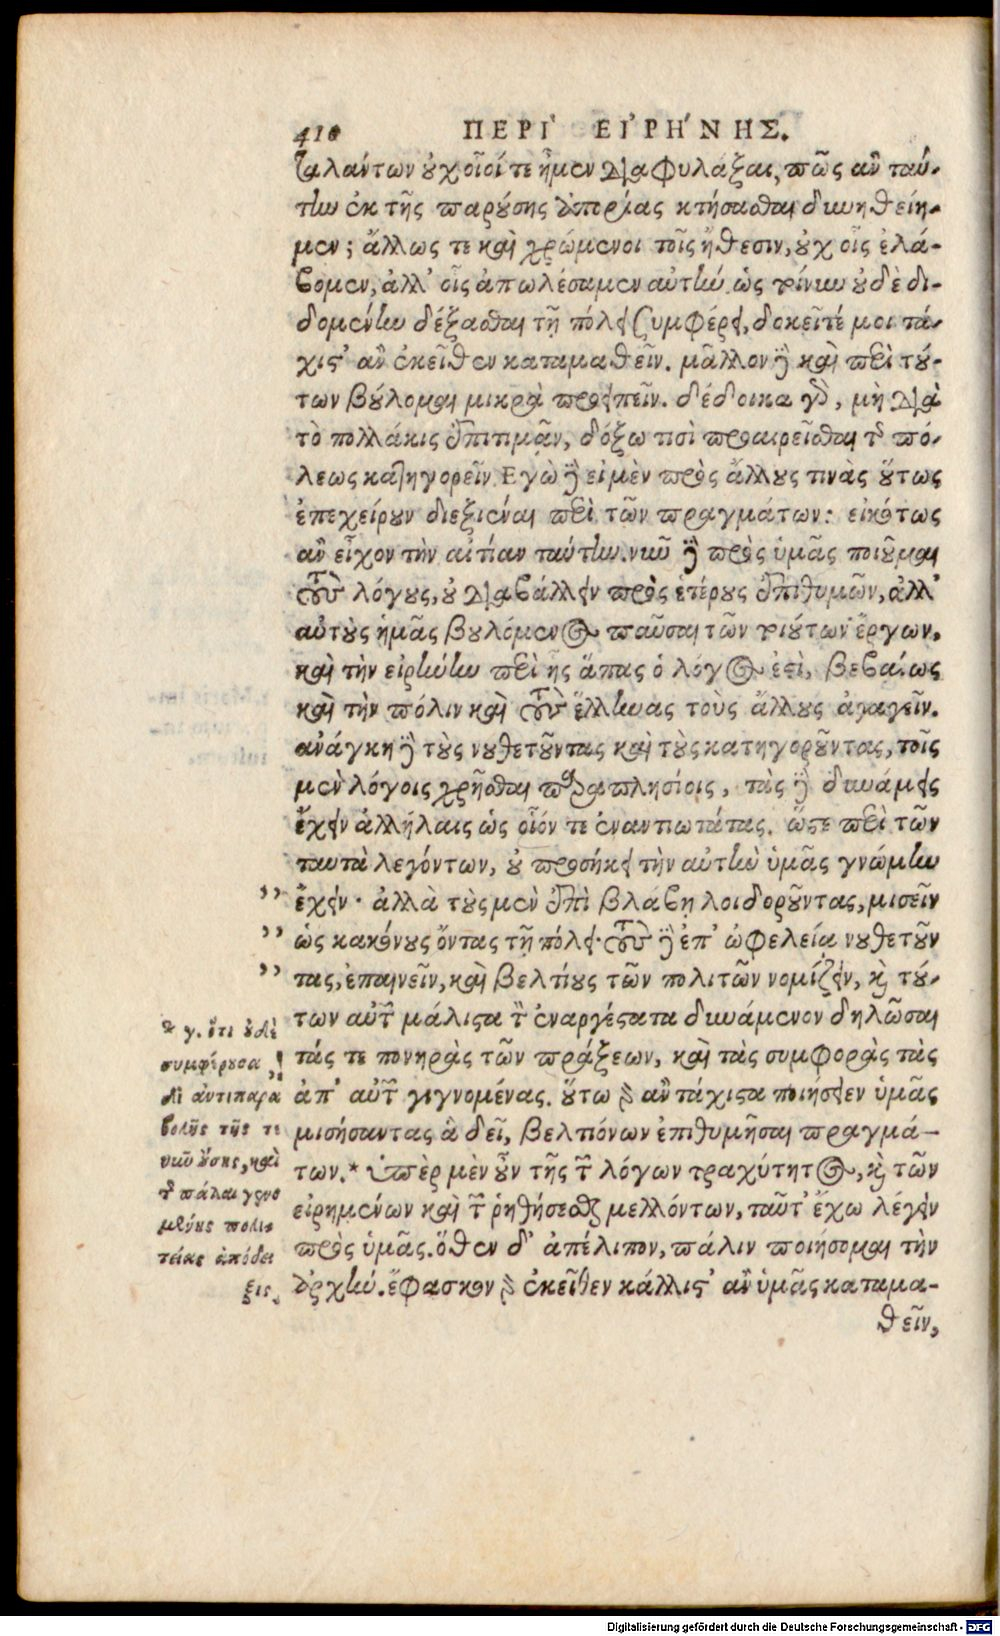 410 ΠΕΡῚ ΕἸΡΉΝΗΣ.
ταλάντων οὐχ οἷοί τε ἦμεν διαφυλάξαι, πῶς ἂν ταύ-
την ἐκ τῆς παρούσης ἀπορίας κτήσασθαι δυνηθείη-
μεν; ἄλλως τε καὶ χρώμενοι τοῖς ἤθεσιν, οὐχ οἷς ἐλά-
βομεν, ἀλλ' οἷς ἀπωλέσαμεν αὐτήν. ὡς τοίνυν οὐδὲ δι-
δομένην δέξασθαι τῇ πόλει συμφέρει, δοκεῖτέ μοι τά-
χιστ' ἂν ἐκεῖθεν καταμαθεῖν. μᾶλλον δὲ καὶ περὶ τού-
των βούλομαι μικρὰ προειπεῖν. δέδοικα γὰρ, μὴ διὰ
τὸ πολλάκις ἐπιτιμᾷν, δόξω τισὶ προαιρεῖσθαι τῆς πό-
λεως κατηγορεῖν. Ἐγὼ δὲ εἰ μὲν πρὸς ἄλλους τινὰς οὕτως
ἐπεχείρουν διεξιέναι περὶ τῶν πραγμάτων: εἰκότως
ἂν εἶχον τὴν αἰτίαν ταύτην. νῦν δὲ πρὸς ὑμᾶς ποιοῦμαι
τοὺς λόγους, οὐ διαβάλλειν πρὸς ἑτέρους ἐπιθυμῶν, ἀλλ'
αὐτοὺς ἡμᾶς βουλόμενος παῦσαι τῶν τοιούτων ἔργων,
καὶ τὴν εἰρήνην περὶ ἧς ἅπας ὁ λόγος ἐστὶ, βεβαίως
καὶ τὴν πόλιν καὶ τοὺς ἕλληνας τοὺς ἄλλους ἀγαγεῖν.
ἀνάγκη δὲ τοὺς νουθετοῦντας καὶ τοὺς κατηγοροῦντας, τοῖς
μὲν λόγοις χρῆσθαι παραπλησίοις, τὰς δὲ δυνάμεις
ἔχειν ἀλλήλαις ὡς οἷόν τε ἐναντιωτάτας. ὥστε περὶ τῶν
ταυτὰ λεγόντων, οὐ προσήκει τὴν αὐτὴν ὑμᾶς γνώμην
,, ἔχειν· ἀλλὰ τοὺς μὲν ἐπὶ βλάβῃ λοιδοροῦντας, μισεῖν
,, ὡς κακόνους ὄντας τῇ πόλει· τοὺς δὲ ἐπ' ὠφελείᾳ νουθετοῦν
,, τας, ἐπαινεῖν, καὶ βελτίους τῶν πολιτῶν νομίζειν, καὶ τού-
των αὐτῶν μάλιστα τὸν ἐναργέστατα δυνάμενον δηλῶσαι
τάς τε πονηρὰς τῶν πράξεων, καὶ τὰς συμφορὰς τὰς
ἀπ' αὐτῶν γιγνομένας. οὕτω γὰρ ἂν τάχιστα ποιήσειεν ὑμᾶς
μισήσαντας ἃ δεῖ, βελτιόνων ἐπιθυμῆσαι πραγμά-
των.* Ὑπὲρ μὲν οὖν τῆς τῶν λόγων τραχύτητος, καὶ τῶν
εἰρημένων καὶ τῶν ῥηθήσεσθαι μελλόντων, ταῦτ' ἔχω λέγειν
πρὸς ὑμᾶς. ὅθεν δ' ἀπέλιπον, πάλιν ποιήσομαι τὴν
ἀρχήν. ἔφασκον γὰρ ἐκεῖθεν κάλλιστ' ἂν ὑμᾶς καταμα-
θεῖν,
* γ. ὅτι οὐδὲ
συμφέρουσα,
δι' ἀντιπαρα
βολῆς τῆς τε
νῦν οὔσης, καὶ
τῆς πάλαι γενο
μένης πολι-
τείας ἀπόδει
ξις.
Digitalisierung gefördert durch die Deutsche Forschungsgemeinschaft - DFG